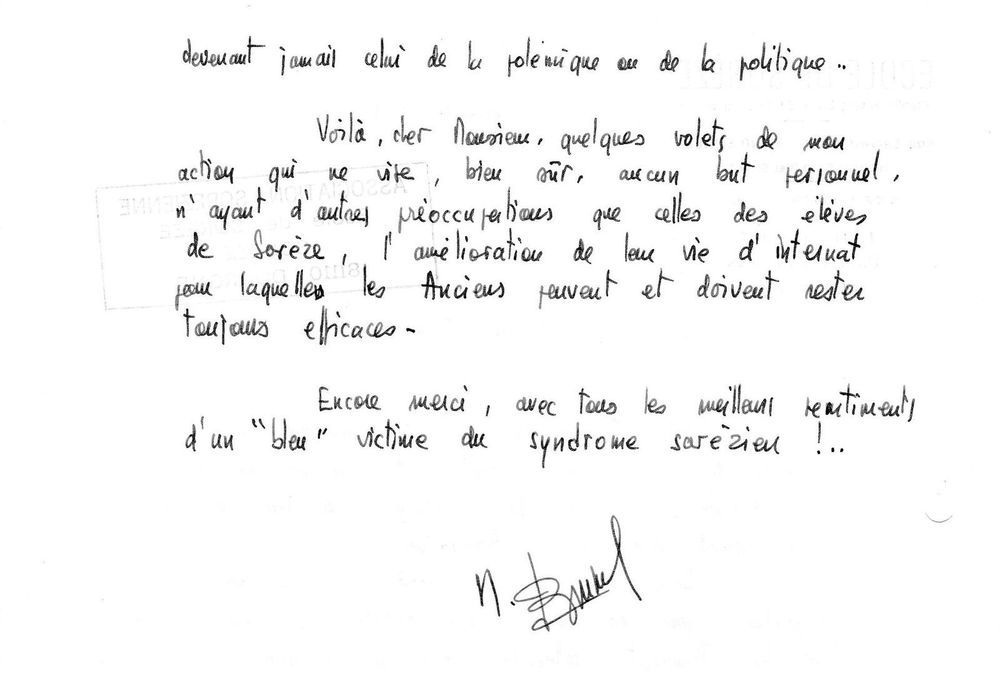 devenant jamais celui de la polémique ou de la politique..
Voilà, cher Monsieur, quelques volets de mon
action qui ne vise, bien sûr, aucun but personnel,
n'ayant d'autres préoccupations que celles des élèves
de Sorèze, l'amélioration de leur vie d'internat
pour laquelle les Anciens peuvent et doivent rester
toujours efficaces -
Encore merci, avec tous les meilleurs sentiments
d'un "bleu" victime du syndrome sorèzien !..